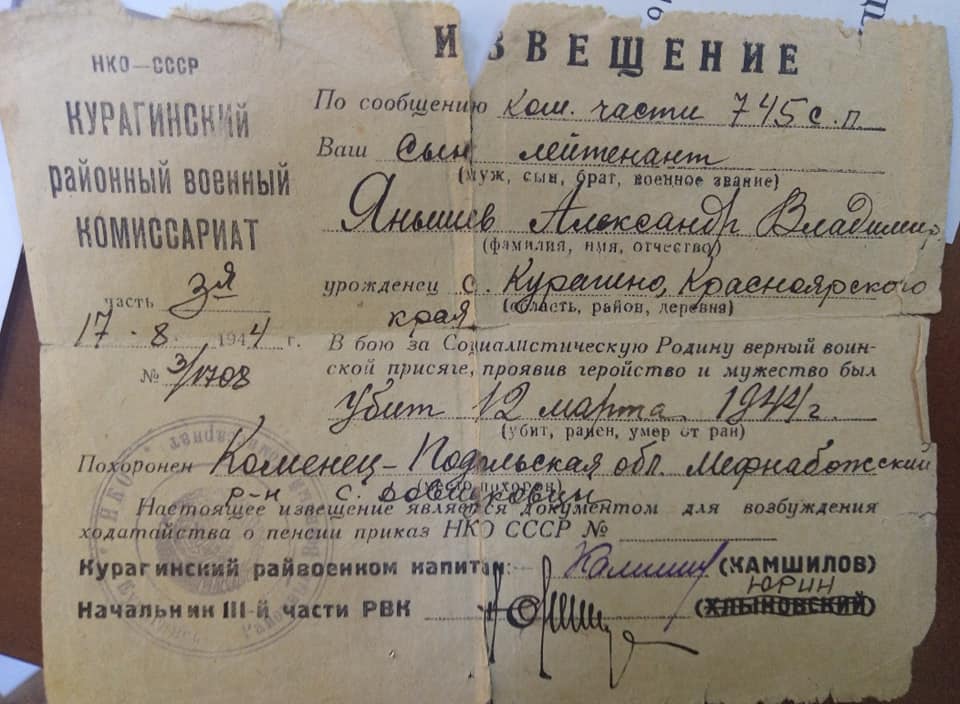 НКО—СССР
КУРАГИНСКИЙ
районный военный
КОМИССАРИАТ
часть 3я
17 · 8 · 1944 г.
№ 3/1708
ИЗВЕЩЕНИЕ
По сообщению ком. части 745 с.п
Ваш сын лейтенант
(муж, сын, брат, военное звание)
Янышев Александр Владимир.
(фамилия, имя, отчество)
урожденец с. Курагино, Красноярского
края (область, район, деревня)
В бою за Социалистическую Родину верный воин-
ской присяге, проявив геройство и мужество был
убит 12 марта 1944 г.
(убит, ранен, умер от ран)
Похоронен Коменец-Подольская обл.
р-н с.
Настоящее извещение является документом для возбуждения
ходатайства о пенсии приказ НКО СССР №
Курагинский райвоенком капитан: (КАМШИЛОВ)
ЮРИН
Начальник III-й части РВК (ХЛЫНОВСКИЙ)